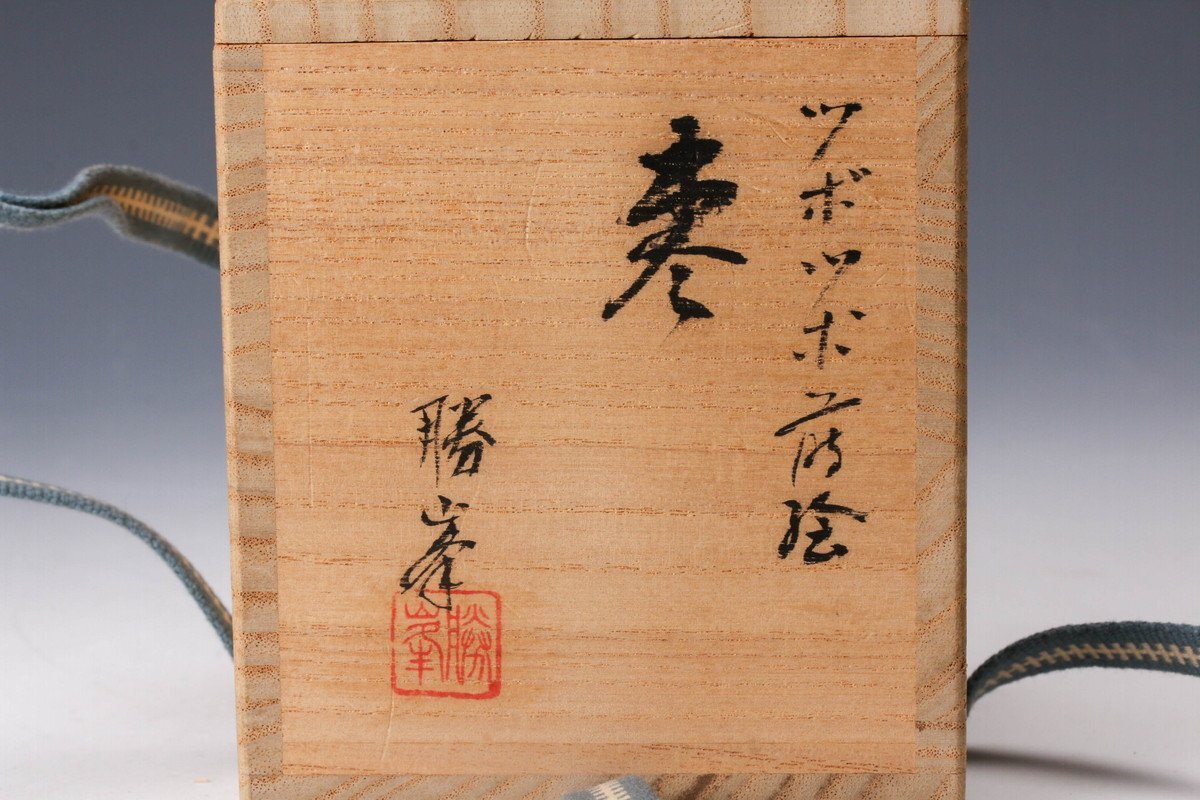 ツボツボ蒔絵
棗
勝峯
勝峯